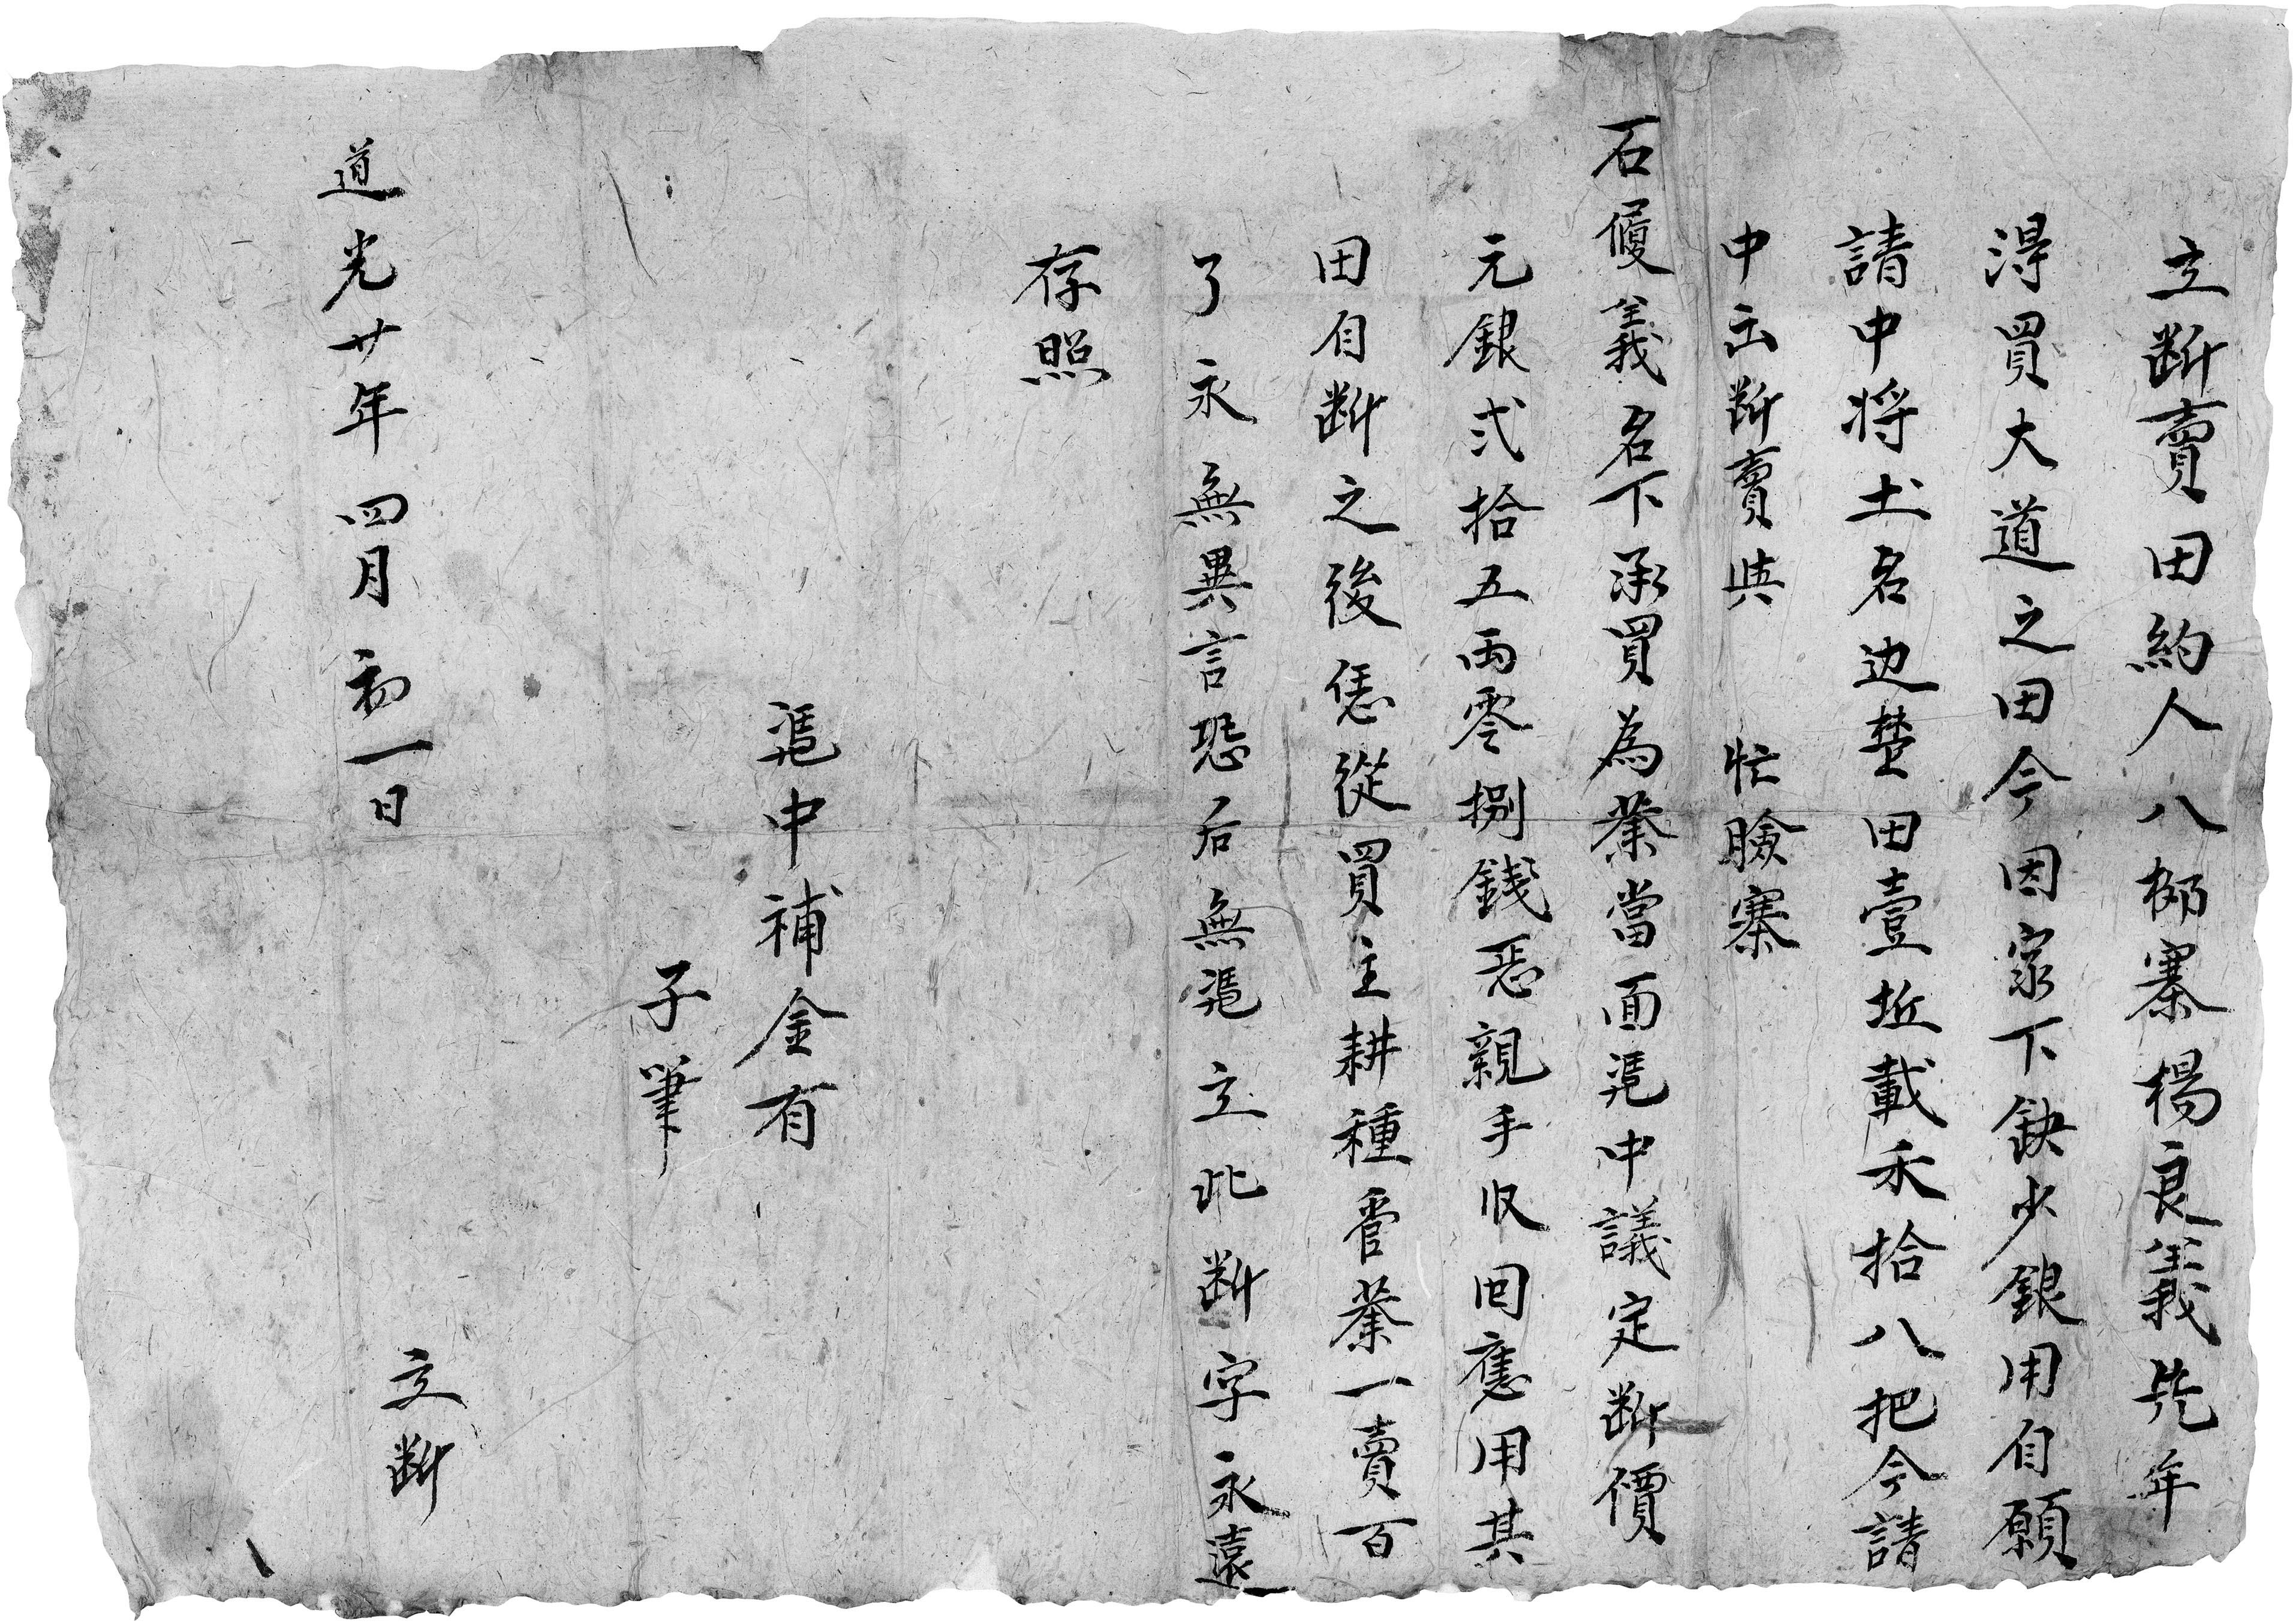 立断賣田約人八梆寨楊良義先年
淂買大道之田今因家下缺少銀用自愿
請中将土名边埜田壹坵載禾拾八把今請
中出断賣與　忙臉寨
石優義名下承買為業當面凴中議定断價
元銀弍拾五両零捌錢㤙親手收回應用其
田自断之後恁從買主耕種管業一賣百
了永無異言恐后無凴立此断字永遠
存照
凴中補金有
子筆
道光廿年四月初一日
立断